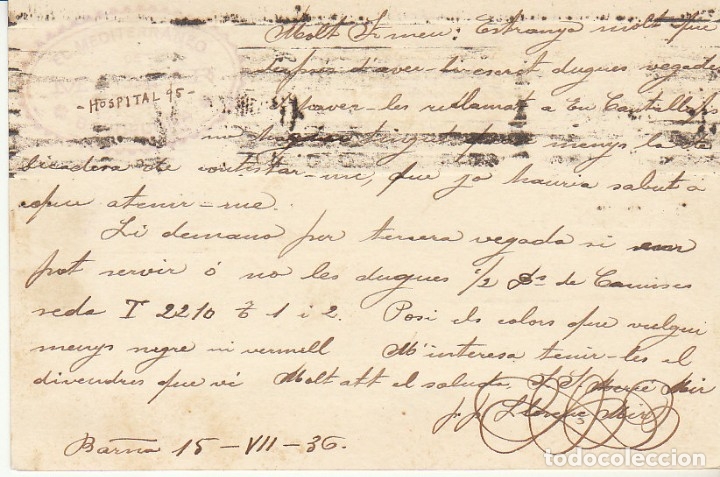 EL MEDITERRANEO
- HOSPITAL 95 -
Molt Sr meu: Estranya molt que
després d'aver-li escrit dugues vegades
haver-les reclamat a En
no hagui tingut menys la
de contestar-me, que jo hauria sabut a
que atenir-me.
Li demano per tercera vegada si
pot servir ó no les dugues 1/2 Ds de Camises
seda T 2210 1 i 2. Posi els colors que vulgui
menys negre ni vermell M'interesa tenir-les el
divendres que vé Molt att el saluda. S. S. Mercé Mir
p. p. Llorenç Mir
Barna 15-VII-36.
todocoleccion
todocoleccion.net